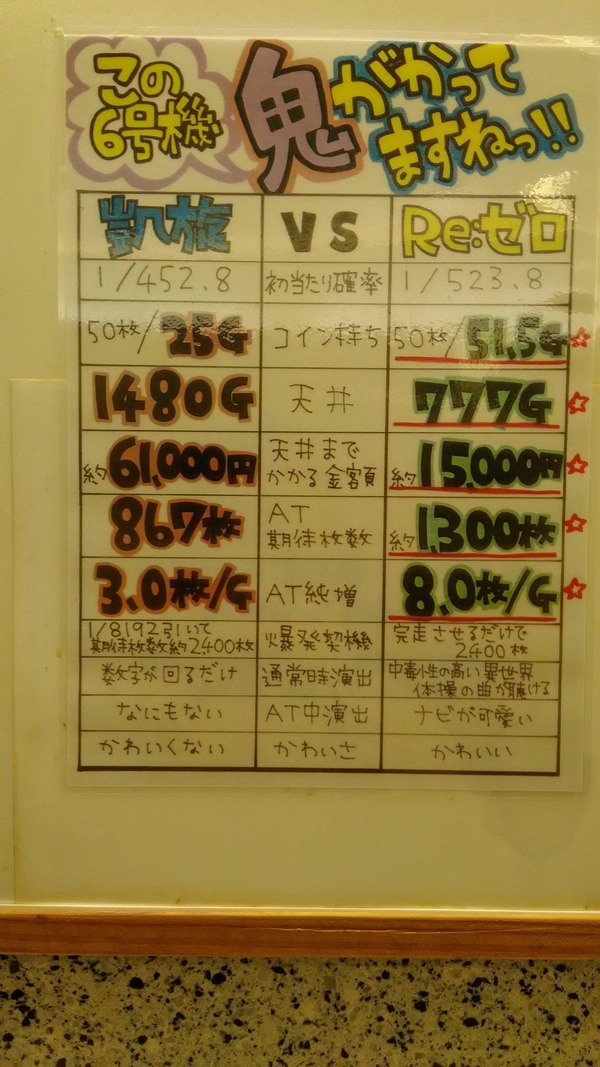 この
6号機
鬼がかって
ますねっ!!
凱旋 VS Re:ゼロ
1/452.8 初当たり確率 1/523.8
50枚/25G コイン持ち 50枚/51.5G ☆
1480G 天井 777G ☆
約61,000円 天井まで
かかる金額 約15,000円 ☆
867枚 AT
期待枚数 約1,300枚 ☆
3.0枚/G AT純増 8.0枚/G ☆
1/8192引いて
期待枚数約2,400枚 爆発契機 完走させるだけで
2400枚
数字が回るだけ 通常時演出 中毒性の高い異世界
体操の曲が聴ける
なにもない AT中演出 ナビが可愛い
かわいくない かわいさ かわいい